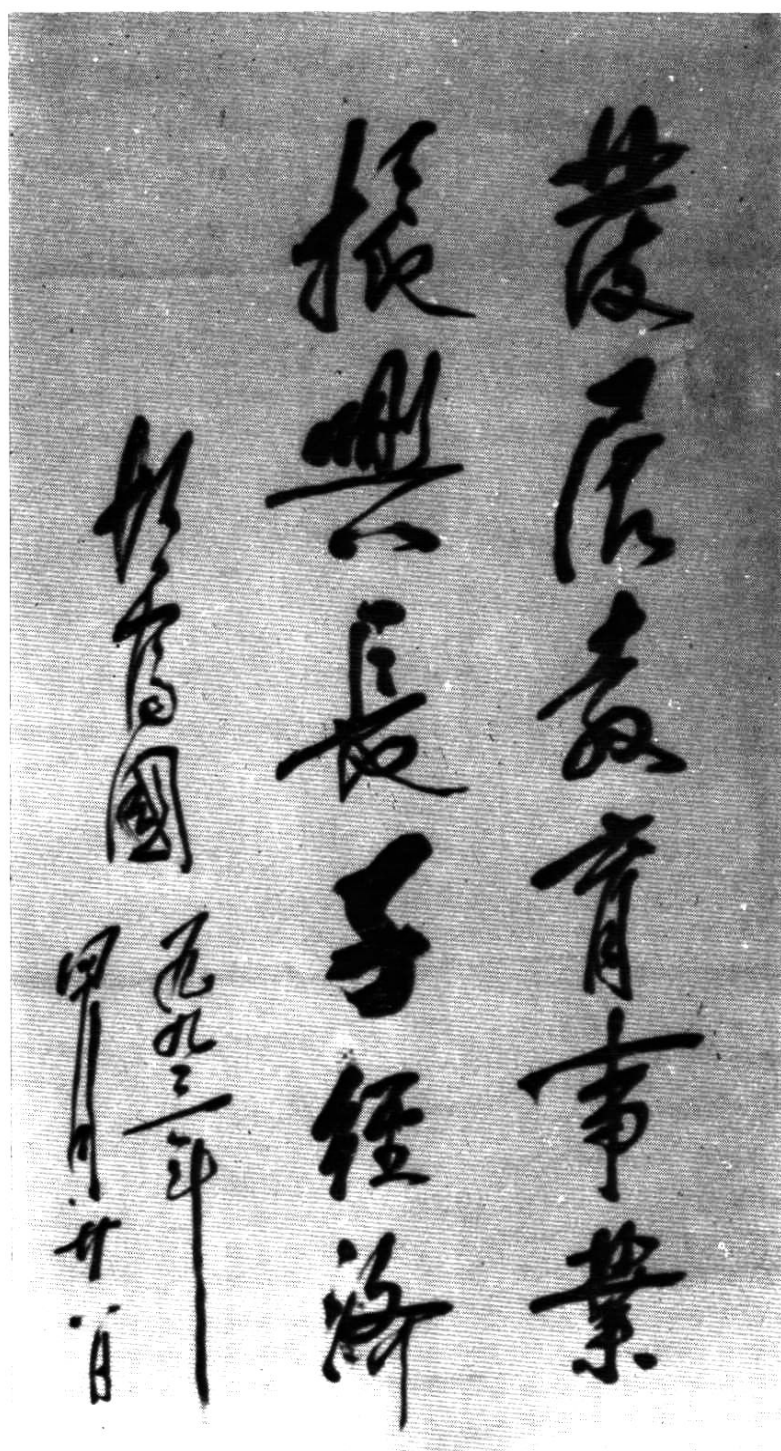 發展教育事業
振興長子經濟
國
一九九三年
四月廿日